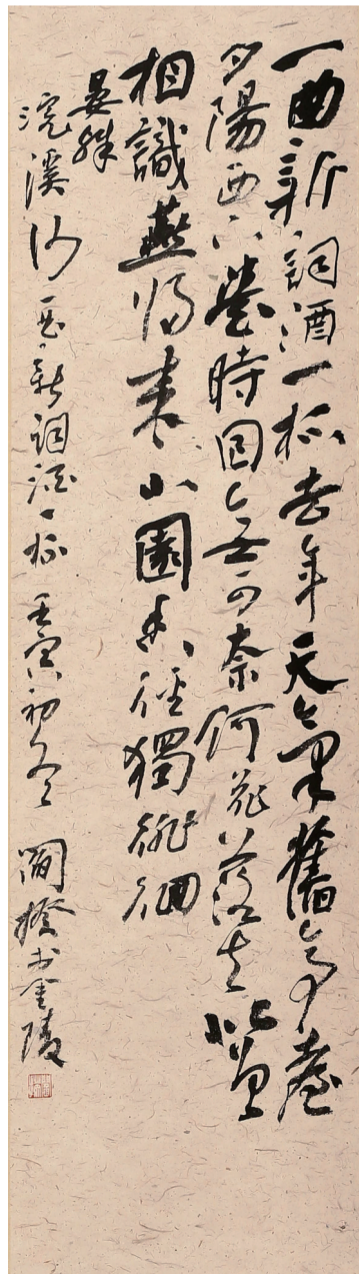 一曲新詞酒一杯去年天氣舊亭臺
夕陽西下幾時回無可奈何花落去似曾
相識燕歸來小園香徑獨徘徊
晏殊
浣溪沙一曲新詞酒一杯壬寅初冬書金陵